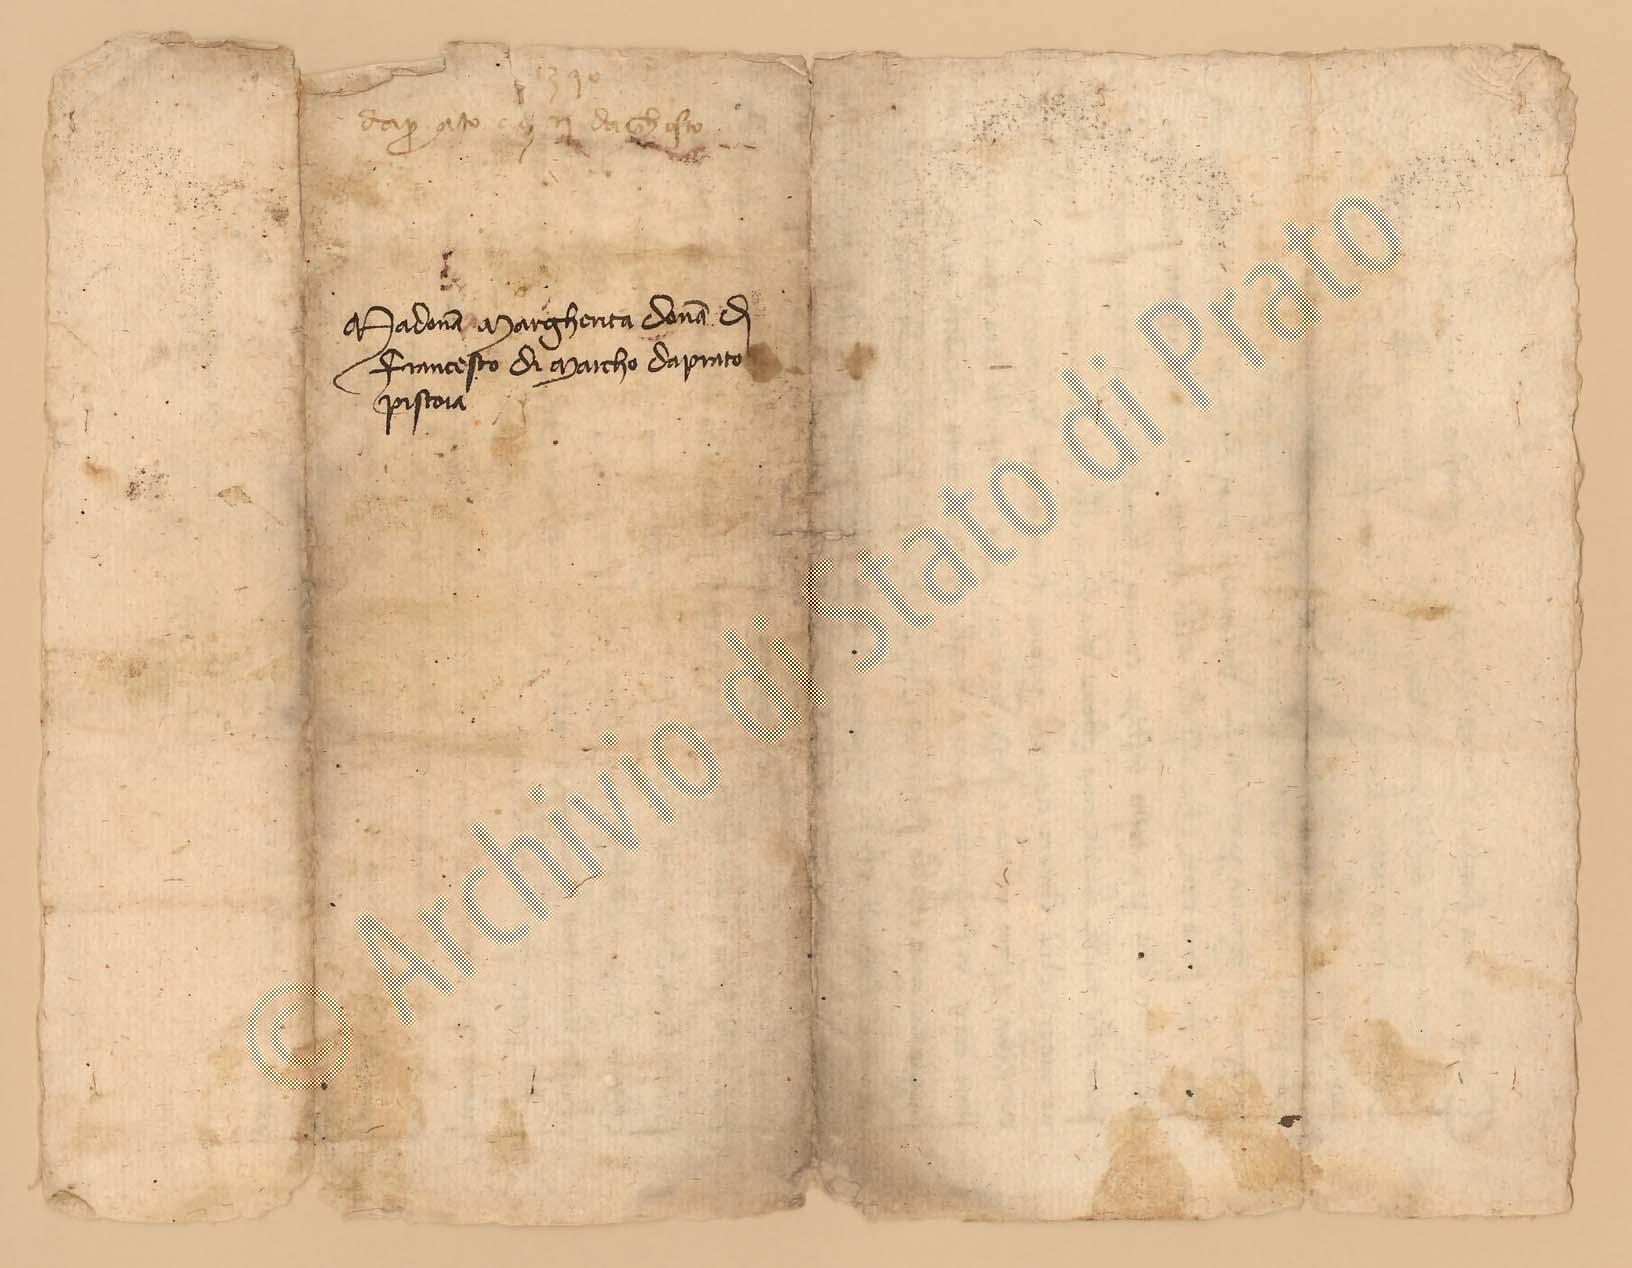 1390
da prato a dì II da ghosto
Madona Margherita dona di
Francescho di Marcho da prato
pistoia
© Archivio di Stato di Prato